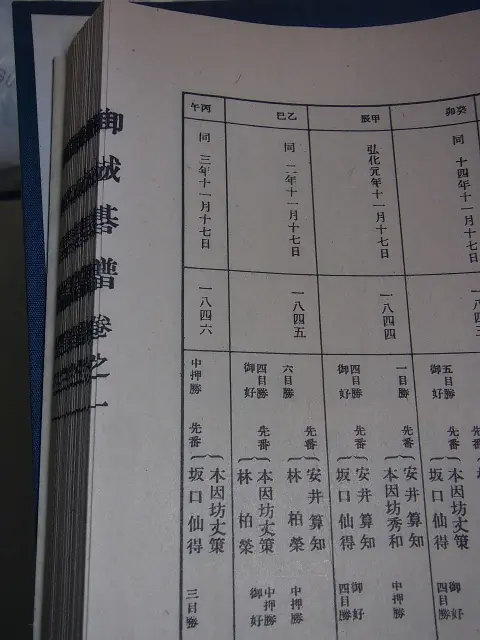 癸卯
同 十四年十一月十七日
一八四三
五目勝
御好
先番
本因坊丈策
坂口仙得
御好
四目勝
甲辰
弘化元年十一月十七日
一八四四
一目勝
先番
安井算知
本因坊秀和
中押勝
四目勝
御好
先番
安井算知
坂口仙得
御好
四目勝
乙巳
同 二年十一月十七日
一八四五
六目勝
先番
安井算知
林 柏榮
中押勝
四目勝
御好
先番
本因坊丈策
林 柏榮
中押勝
御好
丙午
同 三年十一月十七日
一八四六
中押勝
先番
本因坊丈策
坂口仙得
三目勝
御城碁譜 卷之一